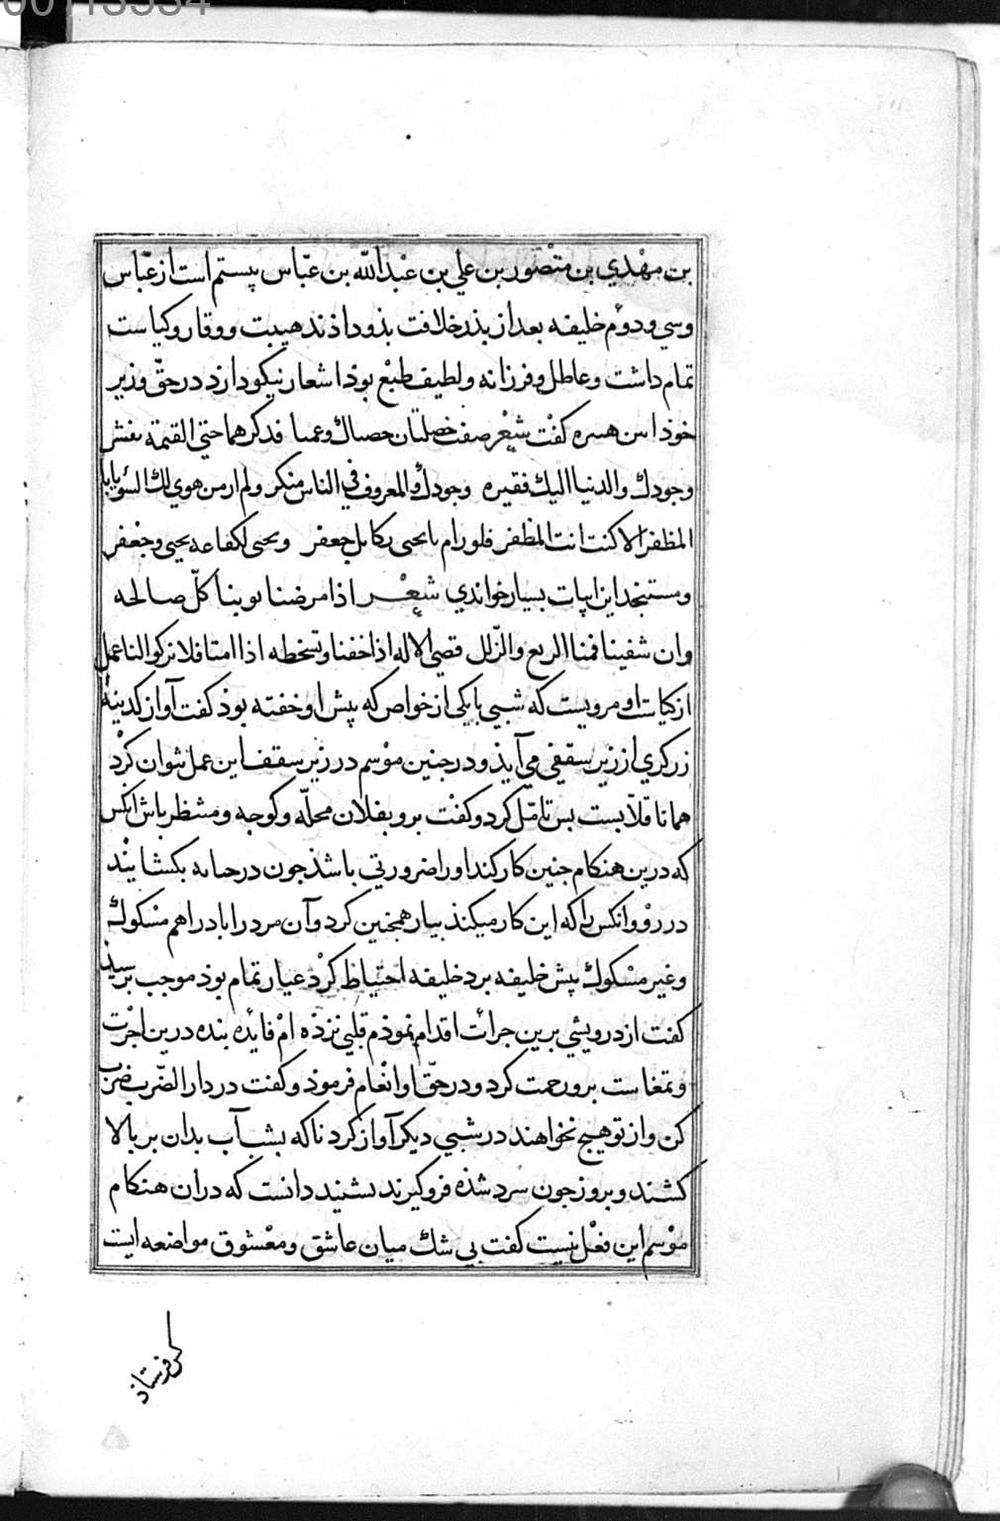 00113534
بن مهْدي بن منصور بن علي بن عبْد اللّه بن عبّاس بيستم است از عبّاس
وسي و دوم خليفه بعد از پذر خلافت بذو داذند هيبت و وقار و كياست
تمام داشت و عاطل و فرزانه و لطيف طبْع بوذ اشعار نيكو دارد در حقّ وزير
خوذ ابن هبيره كفْت شعْر صفت خصلتان خصاك وعمتا فذكرهما حتي القيمة
وجودك والدنيا اليك فقيره وجودك والمعروف في الناس منكر ولم ار من هوي لك السّو يابا
المظفر الا كنت انت المظفر فلو رام يا يحيى مكانك جعفر ويحيى لكفا عنه يحيى وجعْفر
ومستنجد اين ابيات بسيار خواندي شعْر اذا مرضنا نوينا كلّ صالحه
وان شفينا فمنا الربع والزّلل قصي الاله اذا خفنا وتسخطه اذا امنا فلا نركو النا عمل
از كياست او مرويست كه شبي با يكي از خواص كه پيش او خفته بوذ كفت آواز كدينهٔ
زركري از زير سقفي مي آيذ و در جنين موْسم در زير سقف اين عمل نتوان كرْد
همانا قلاّبست پس تامّل كرد و كفْت برو بفلان محلّه و كوجه و منتظر باش انكس
كه درين هنكام جنين كار كند او را ضرورتي باشذ جون در خانه بكشايند
در رو و انكس را كه اين كار ميكند بيار همجنين كرد و آن مرد را با دراهم مسْكوك
و غير مسْكوك پيش خليفه برد خليفه احتياط كرْد عيار تمام بوذ موجب پرسيد
كفت از درويشي برين جراٺ اقدام نموذم قلبي نزذه ام فايده بنده درين اجْرت
و تمغاست برو رحمت كرد و در حقّ او انعام فرموذ و كفت در دار الضّرب ضرب
كن و از تو هيج نخواهند در شبي ديكر آواز كردناكه بشب آب بدان بر بالا
كشند و بروز جون سرد شذه فرو كيرند بشنيد دانست كه در ان هنكام
موْسم اين فعْل نيست كفت بي شك ميان عاشق و معْشوق مواضعه ايست
كس فرستاذ